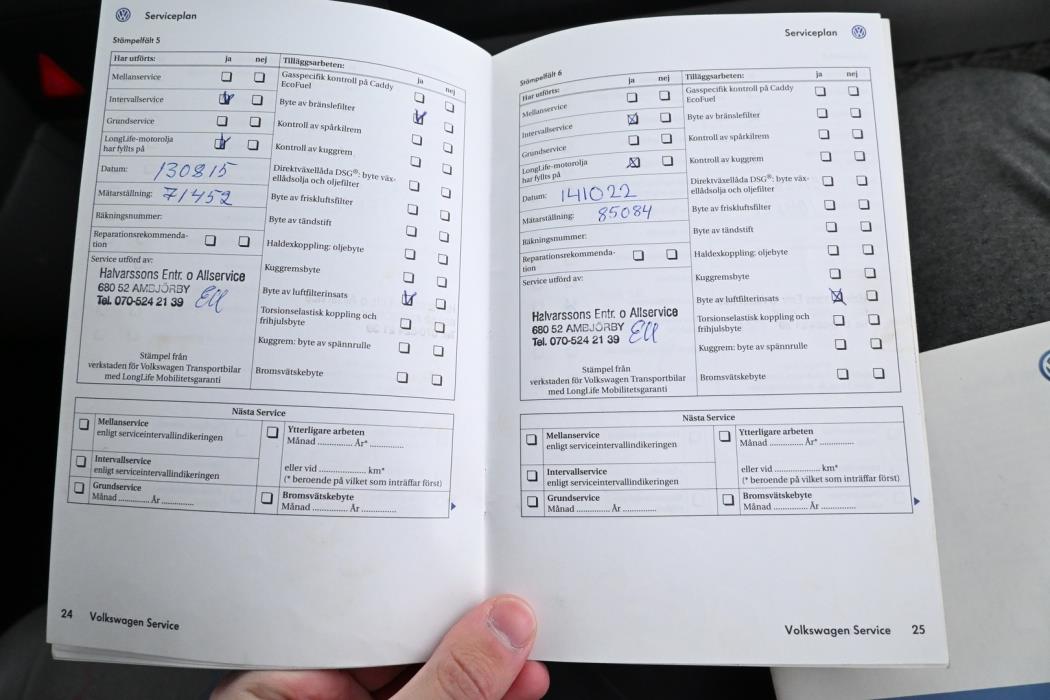 Serviceplan
Stämpelfält 5
Har utförts: ja nej
Mellanservice
Intervallservice
Grundservice
LongLife-motorolja
har fyllts på
Datum: 130815
Mätarställning: 71452
Räkningsnummer:
Reparationsrekommenda-
tion
Service utförd av:
Halvarssons Entr. o Allservice
680 52 AMBJÖRBY
Tel. 070-524 21 39
Stämpel från
verkstaden för Volkswagen Transportbilar
med LongLife Mobilitetsgaranti
Tilläggsarbeten: ja nej
Gasspecifik kontroll på Caddy
EcoFuel
Byte av bränslefilter
Kontroll av spårkilrem
Kontroll av kuggrem
Direktväxellåda DSG®: byte väx-
ellådsolja och oljefilter
Byte av friskluftsfilter
Byte av tändstift
Haldexkoppling: oljebyte
Kuggremsbyte
Byte av luftfilterinsats
Torsionselastisk koppling och
frihjulsbyte
Kuggrem: byte av spännrulle
Bromsvätskebyte
Nästa Service
Mellanservice
enligt serviceintervallindikeringen
Intervallservice
enligt serviceintervallindikeringen
Grundservice
Månad ............ År ............
Ytterligare arbeten
Månad ............ År* ............
eller vid ............ km*
(* beroende på vilket som inträffar först)
Bromsvätskebyte
Månad ............ År ............
24 Volkswagen Service
Serviceplan
Stämpelfält 6
Har utförts: ja nej
Mellanservice
Intervallservice
Grundservice
LongLife-motorolja
har fyllts på
Datum: 141022
Mätarställning: 85084
Räkningsnummer:
Reparationsrekommenda-
tion
Service utförd av:
Halvarssons Entr. o Allservice
680 52 AMBJÖRBY
Tel. 070-524 21 39
Stämpel från
verkstaden för Volkswagen Transportbilar
med LongLife Mobilitetsgaranti
Tilläggsarbeten: ja nej
Gasspecifik kontroll på Caddy
EcoFuel
Byte av bränslefilter
Kontroll av spårkilrem
Kontroll av kuggrem
Direktväxellåda DSG®: byte väx-
ellådsolja och oljefilter
Byte av friskluftsfilter
Byte av tändstift
Haldexkoppling: oljebyte
Kuggremsbyte
Byte av luftfilterinsats
Torsionselastisk koppling och
frihjulsbyte
Kuggrem: byte av spännrulle
Bromsvätskebyte
Nästa Service
Mellanservice
enligt serviceintervallindikeringen
Intervallservice
enligt serviceintervallindikeringen
Grundservice
Månad ............ År ............
Ytterligare arbeten
Månad ............ År* ............
eller vid ............ km*
(* beroende på vilket som inträffar först)
Bromsvätskebyte
Månad ............ År ............
Volkswagen Service 25